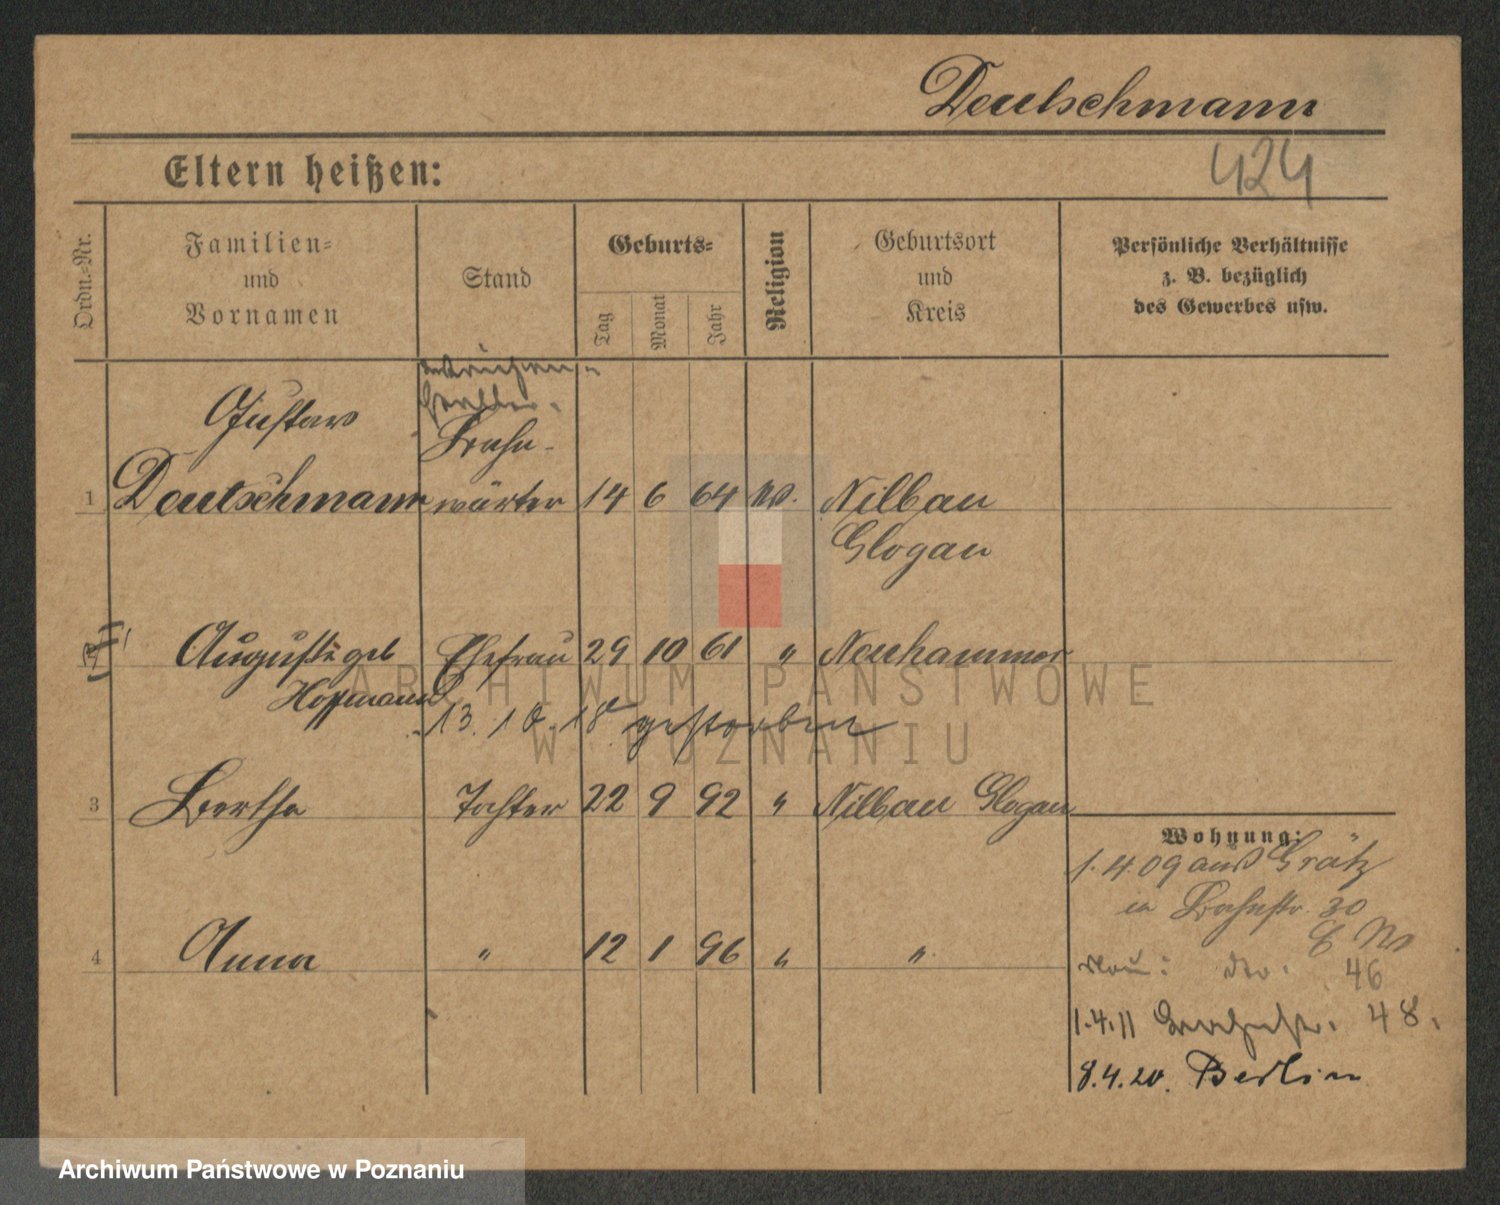 Deutschmann
424
Eltern heißen:
Ordn.-Nr.
Familien-
und
Vornamen
Stand
Geburts-
Tag
Monat
Jahr
Religion
Geburtsort
und
Kreis
Persönliche Verhältnisse
z. B. bezüglich
des Gewerbes usw.
Gustav
Bahn-
1 Deutschmann wärter 14 6 64 Nilbau
Glogau
Auguste geb Ehefrau 29 10 61 " Neuhammer
Hoffmann
13. 10. 18 gestorben
3 Bertha Tochter 22 9 92 " Nilbau Glogau
Wohnung:
1. 4. 09 aus Grätz
in Bahnstr. 30
4 Anna " 12 1 96 " "
dto. 46
1.4.11 48.
8.4.20. Berlin
ARCHIWUM PAŃSTWOWE
W POZNANIU
Archiwum Państwowe w Poznaniu